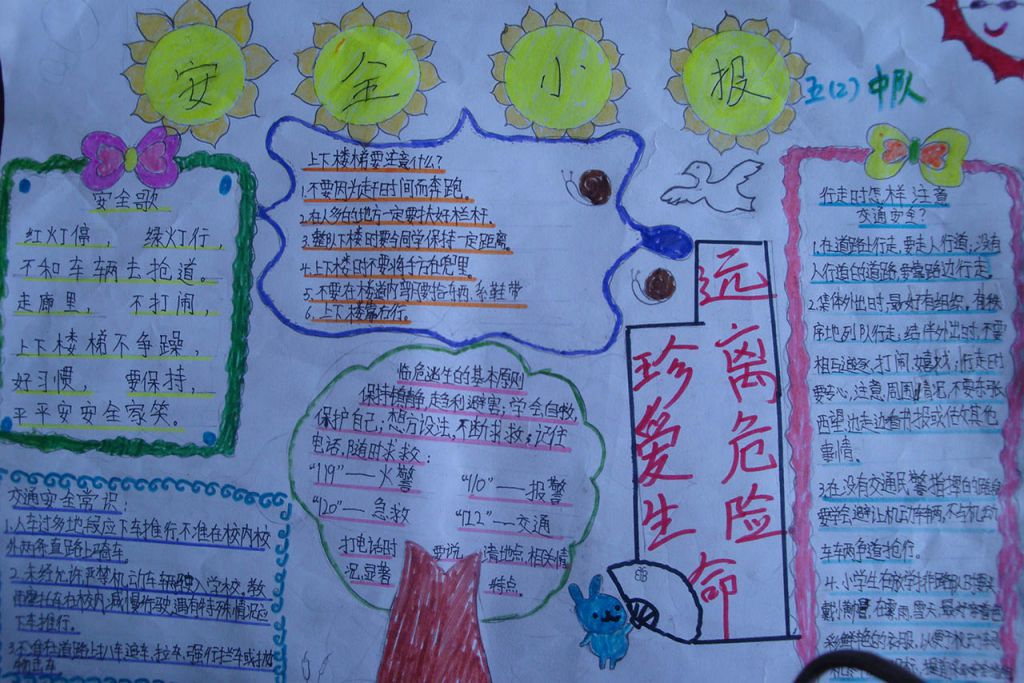 安全小报
五(2)中队
安全歌
红灯停， 绿灯行，
不和车辆去抢道。
走廊里， 不打闹，
上下楼梯不争躁，
好习惯， 要保持，
平平安安全家笑。
上下楼梯要注意什么？
1.不要因为赶时间而奔跑。
2.在人多的地方一定要扶好栏杆。
3.整队下楼时要与同学保持一定距离。
4.上下楼时不要将手放在兜里。
5.不要在楼道内弯腰拾东西、系鞋带
6.上下楼靠右行。
远离危险
珍爱生命
临危逃生的基本原则
保持镇静，趋利避害；学会自救，
保护自己；想方设法，不断求救；记住
电话，随时求救：
“119”——火警
“110”——报警
“120”——急救
“122”——交通
打电话时 要说 清地点，相关情
况，显著 特点。
交通安全常识：
1.人车过多地段应下车推行不准在校内校
外两条直路上骑车。
2.未经允许严禁机动车辆驶入学校，教
师摩托车在校内减慢行驶，遇有特殊情况应
下车推行。
3.不准在道路上扒车追车，拉车，强行拦车或抛
物击车
行走时怎样注意
交通安全？
1.在道路上行走，要走人行道；没有
人行道的道路，要靠路边行走。
2.集体外出时，最好有组织，有秩
序地列队行走；结伴外出时，不要
相互追逐、打闹、嬉戏；行走时
要专心，注意周围情况，不要东张
西望、边走边看书报或做其他
事情。
3.在没有交通民警指挥的路段
要学会避让机动车辆，不与机动
车车辆争道抢行。
4.小学生在放学排路队时要头
戴小黄帽，在雾，雨，雪天，最好穿着色
彩鲜艳的衣服，以便于机动车司